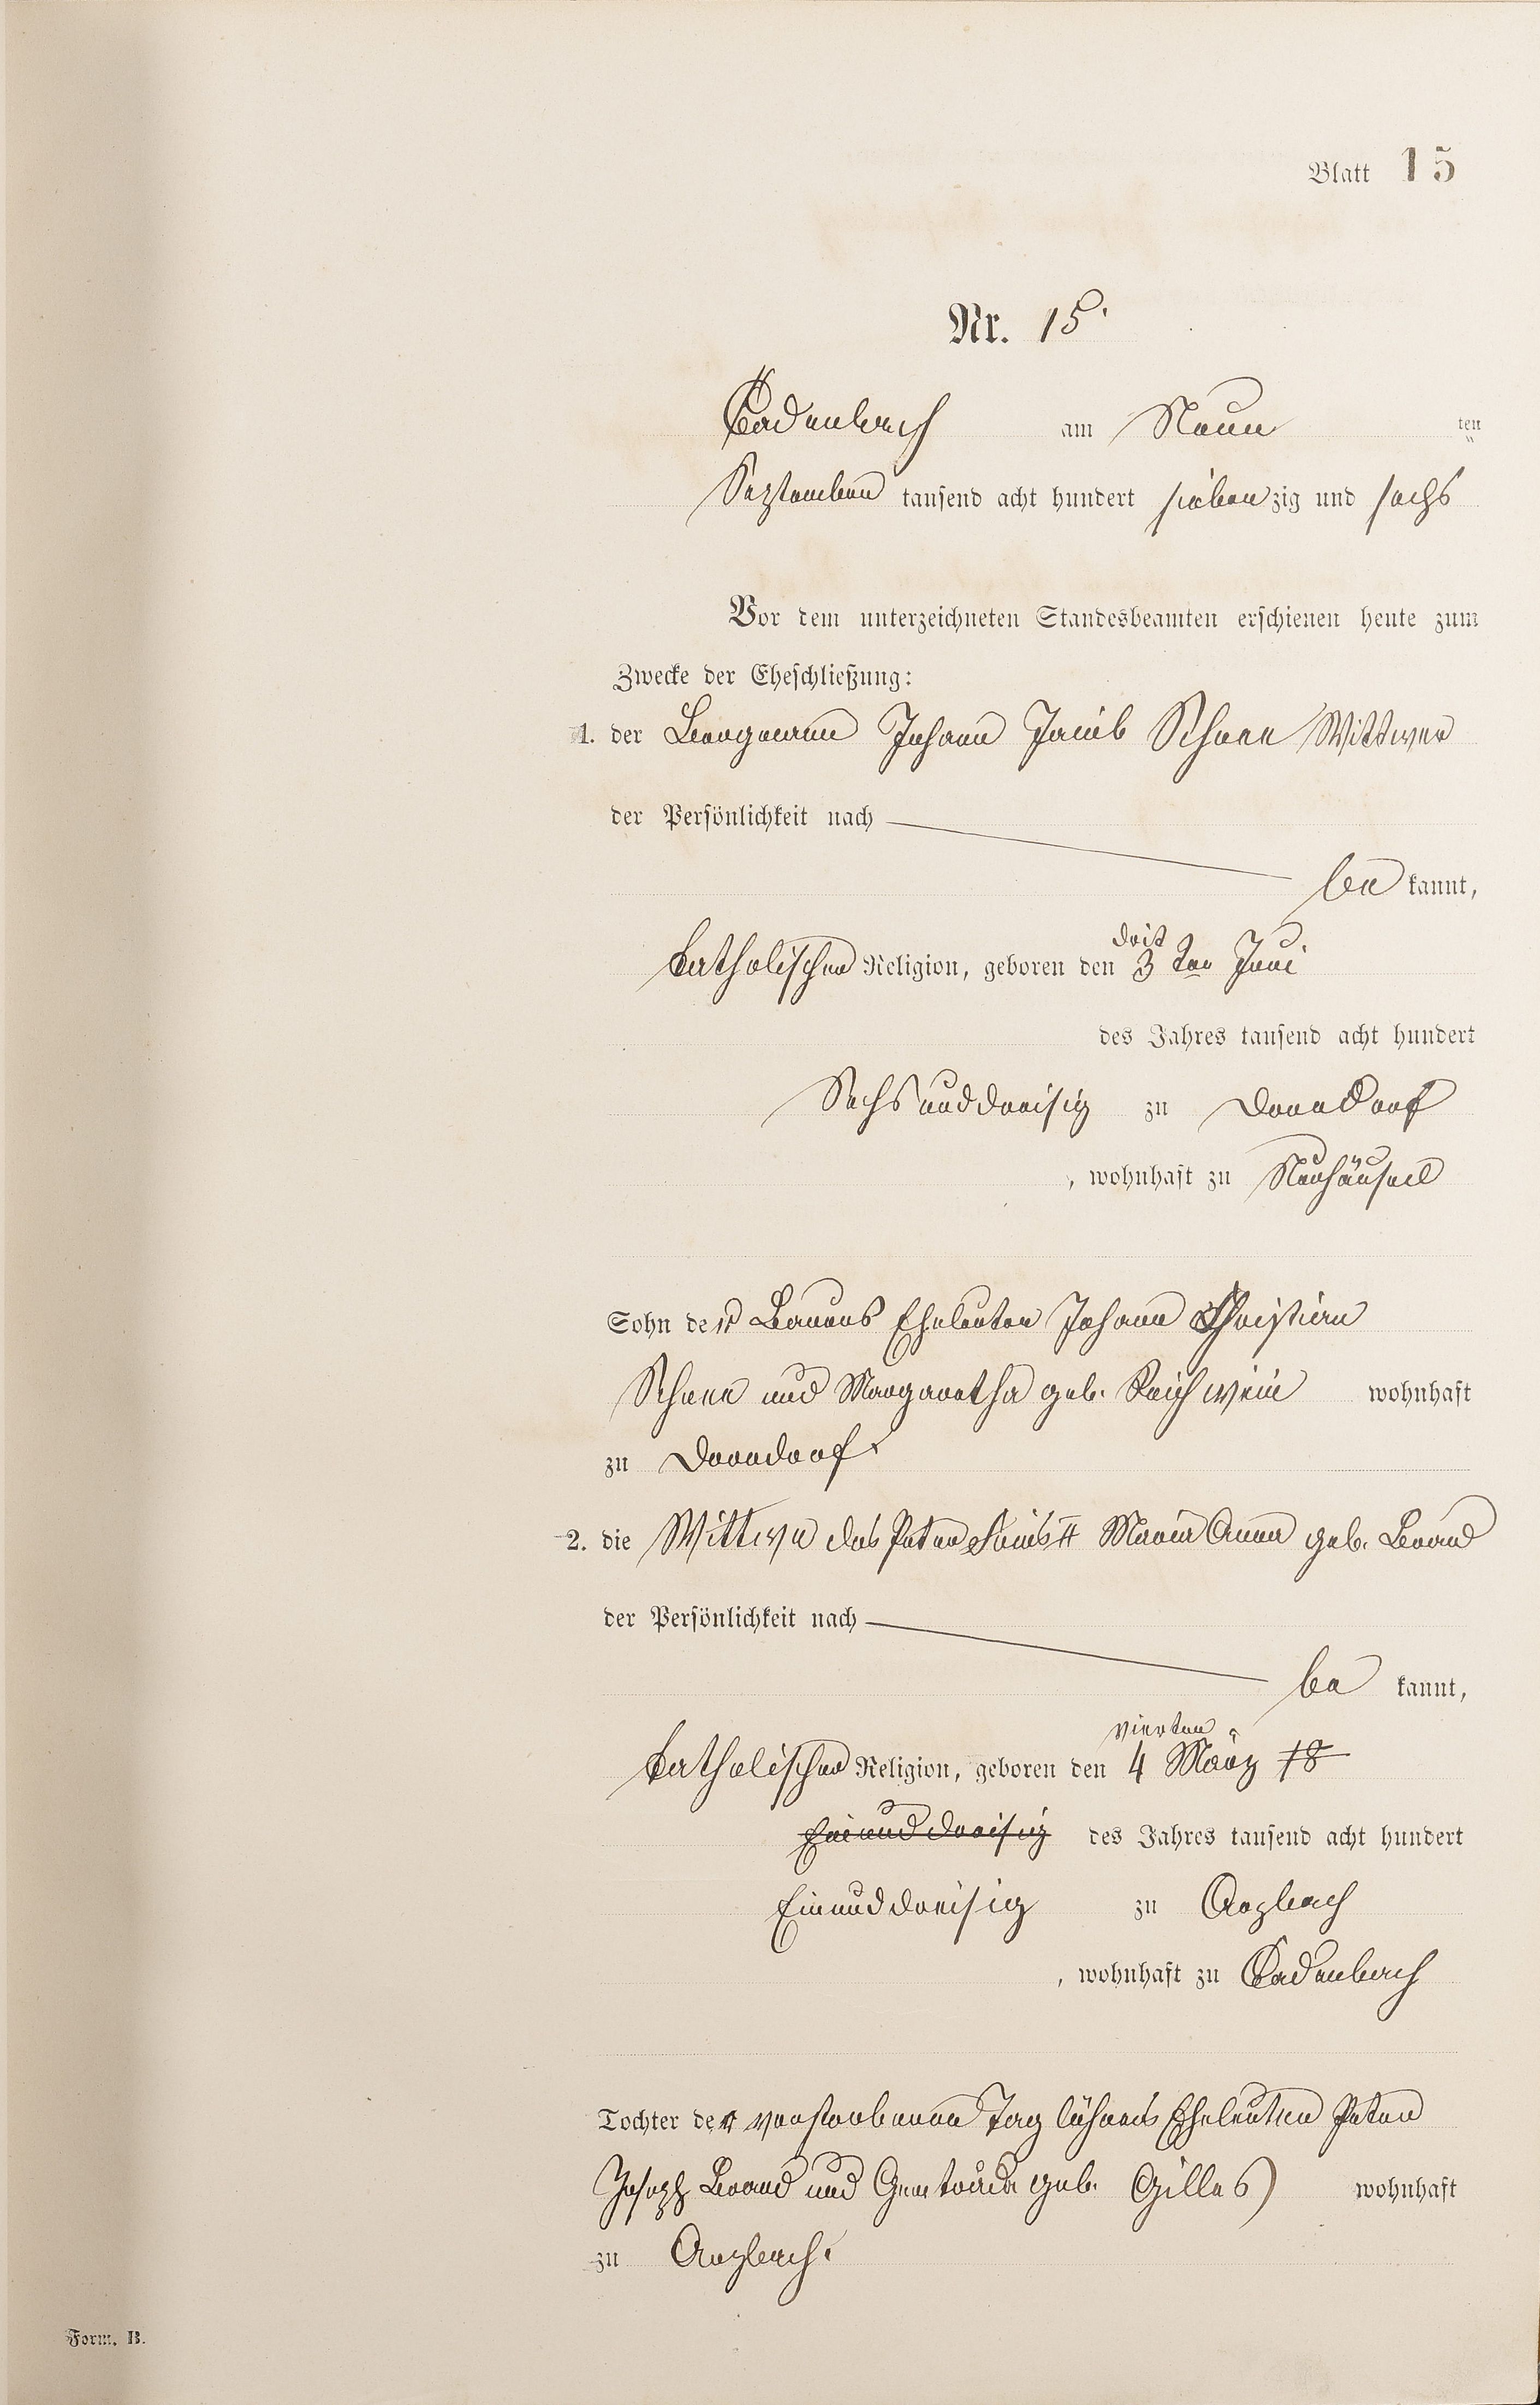 Blatt 15
Nr. 15.
Cadenbach am Neun ten
September tausend acht hundert sieben zig und sechs
Vor dem unterzeichneten Standesbeamten erschienen heute zum
Zwecke der Eheschließung:
1. der Bergmann Johann Jacob Schnee Wittwer
der Persönlichkeit nach
be kannt,
katholischer Religion, geboren den 3 ten Juni
drit
des Jahres tausend acht hundert
Sechsunddreisig zu Dorndorf
, wohnhaft zu Neuhäusel
Sohn der Bauers Eheleuten Johann Christian
Schnee und Margaretha geb. Reichwein wohnhaft
zu Dorndorf.
2. die Wittwe des Peter II Maria Anna geb. Brand
der Persönlichkeit nach
be kannt,
katholischer Religion, geboren den 4 März 18
vierten
Einunddreisig des Jahres tausend acht hundert
Einunddreisig zu Arzbach
, wohnhaft zu Cadenbach
Tochter der verstorbenen Taglöhners Eheleuten Peter
Joseph Brand und Gertrude geb. Gilles) wohnhaft
zu Arzbach.
Form. B.